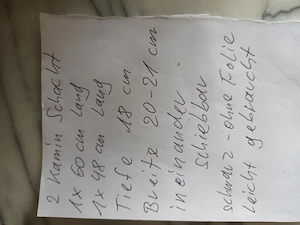 2 Kamin Schacht
1x 60 cm lang
1x 48 cm lang
Tiefe 18 cm
Breite 20-21 cm
ineinander
schiebbar
schwarz - ohne Folie
leicht gebraucht